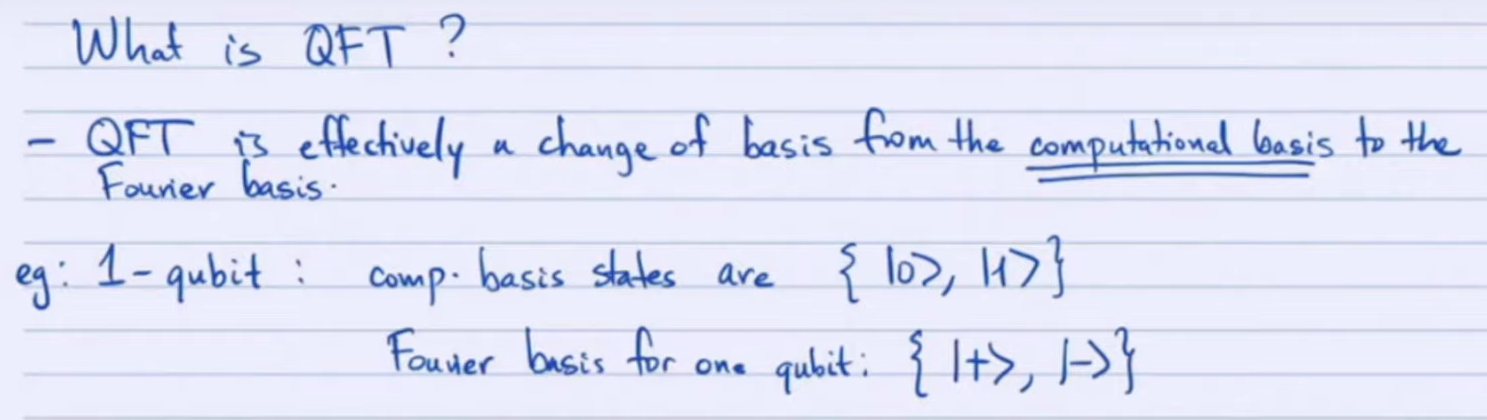 What is QFT ?
- QFT is effectively a change of basis from the computational basis to the
Fourier basis.
eg: 1-qubit : comp. basis states are { |0>, |1>}
Fourier basis for one qubit: { |+>, |->}